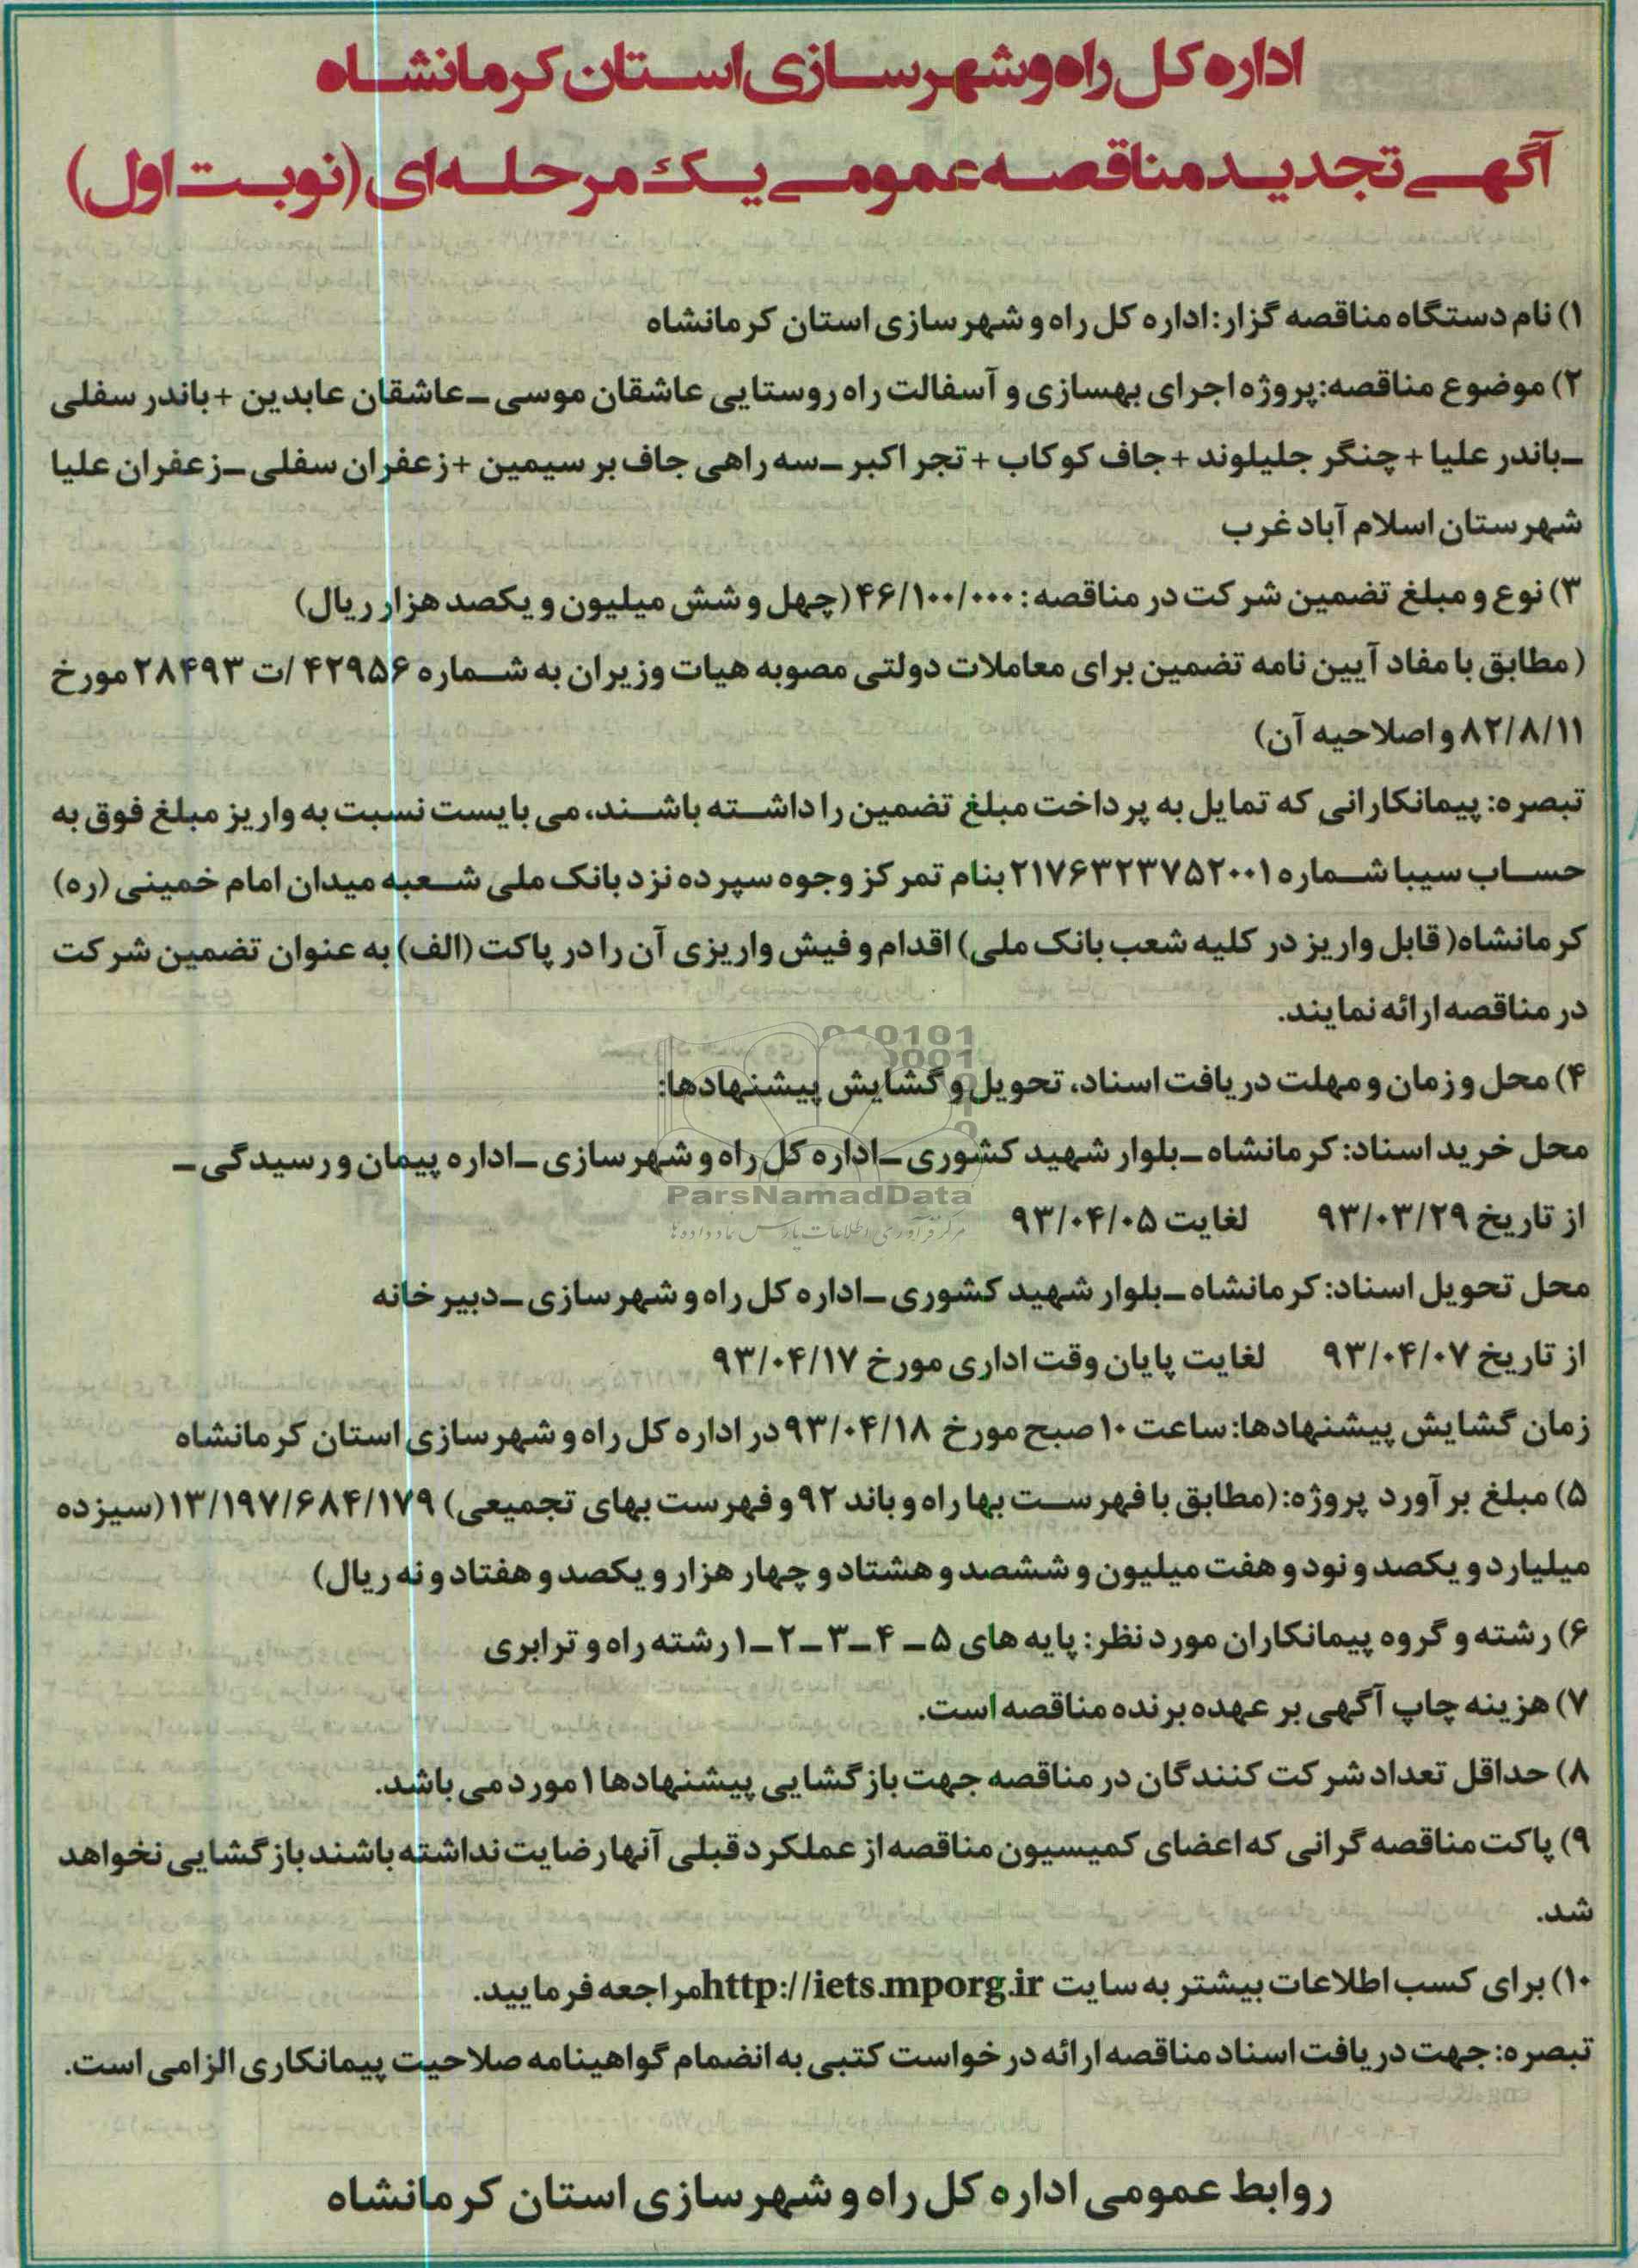 اداره کل راه و شهرسازی استان کرمانشاه
آگهی تجدید مناقصه عمومی یک مرحله‌ای (نوبت اول)
۱) نام دستگاه مناقصه گزار: اداره کل راه و شهرسازی استان کرمانشاه
۲) موضوع مناقصه: پروژه اجرای بهسازی و آسفالت راه روستایی عاشقان موسی – عاشقان عابدین + باندر سفلی
– باندر علیا + چنگر جلیلوند + جاف کوکاب + تجر اکبر – سه راهی جاف بر سیمین + زعفران سفلی – زعفران علیا
شهرستان اسلام آباد غرب
۳) نوع و مبلغ تضمین شرکت در مناقصه: ۴۶/۱۰۰/۰۰۰ (چهل و شش میلیون و یکصد هزار ریال)
( مطابق با مفاد آیین نامه تضمین برای معاملات دولتی مصوبه هیات وزیران به شماره ۴۲۹۵۶ /ت ۲۸۴۹۳ مورخ
۸۲/۸/۱۱ و اصلاحیه آن)
تبصره: پیمانکارانی که تمایل به پرداخت مبلغ تضمین را داشته باشند، می بایست نسبت به واریز مبلغ فوق به
حساب سیبا شماره ۲۱۷۶۳۲۳۷۵۲۰۰۱ بنام تمرکز وجوه سپرده نزد بانک ملی شعبه میدان امام خمینی (ره)
کرمانشاه( قابل واریز در کلیه شعب بانک ملی) اقدام و فیش واریزی آن را در پاکت (الف) به عنوان تضمین شرکت
در مناقصه ارائه نمایند.
۴) محل و زمان و مهلت دریافت اسناد، تحویل و گشایش پیشنهادها:
محل خرید اسناد: کرمانشاه – بلوار شهید کشوری – اداره کل راه و شهرسازی – اداره پیمان و رسیدگی –
از تاریخ ۹۳/۰۳/۲۹ لغایت ۹۳/۰۴/۰۵
محل تحویل اسناد: کرمانشاه – بلوار شهید کشوری – اداره کل راه و شهرسازی – دبیرخانه
از تاریخ ۹۳/۰۴/۰۷ لغایت پایان وقت اداری مورخ ۹۳/۰۴/۱۷
زمان گشایش پیشنهادها: ساعت ۱۰ صبح مورخ ۹۳/۰۴/۱۸ در اداره کل راه و شهرسازی استان کرمانشاه
۵) مبلغ برآورد پروژه: (مطابق با فهرست بها راه و باند ۹۲ و فهرست بهای تجمیعی) ۱۳/۱۹۷/۶۸۴/۱۷۹ (سیزده
میلیارد و یکصد و نود و هفت میلیون و ششصد و هشتاد و چهار هزار و یکصد و هفتاد و نه ریال)
۶) رشته و گروه پیمانکاران مورد نظر: پایه های ۵ – ۴ – ۳ – ۲ – ۱ رشته راه و ترابری
۷) هزینه چاپ آگهی بر عهده برنده مناقصه است.
۸) حداقل تعداد شرکت کنندگان در مناقصه جهت بازگشایی پیشنهادها ۱ مورد می باشد.
۹) پاکت مناقصه گرانی که اعضای کمیسیون مناقصه از عملکرد قبلی آنها رضایت نداشته باشند بازگشایی نخواهد
شد.
۱۰) برای کسب اطلاعات بیشتر به سایت http://iets.mporg.ir مراجعه فرمایید.
تبصره: جهت دریافت اسناد مناقصه ارائه درخواست کتبی به انضمام گواهینامه صلاحیت پیمانکاری الزامی است.
روابط عمومی اداره کل راه و شهرسازی استان کرمانشاه
ParsNamadData
مرکز فرآوری اطلاعات پارس نماد داده ها